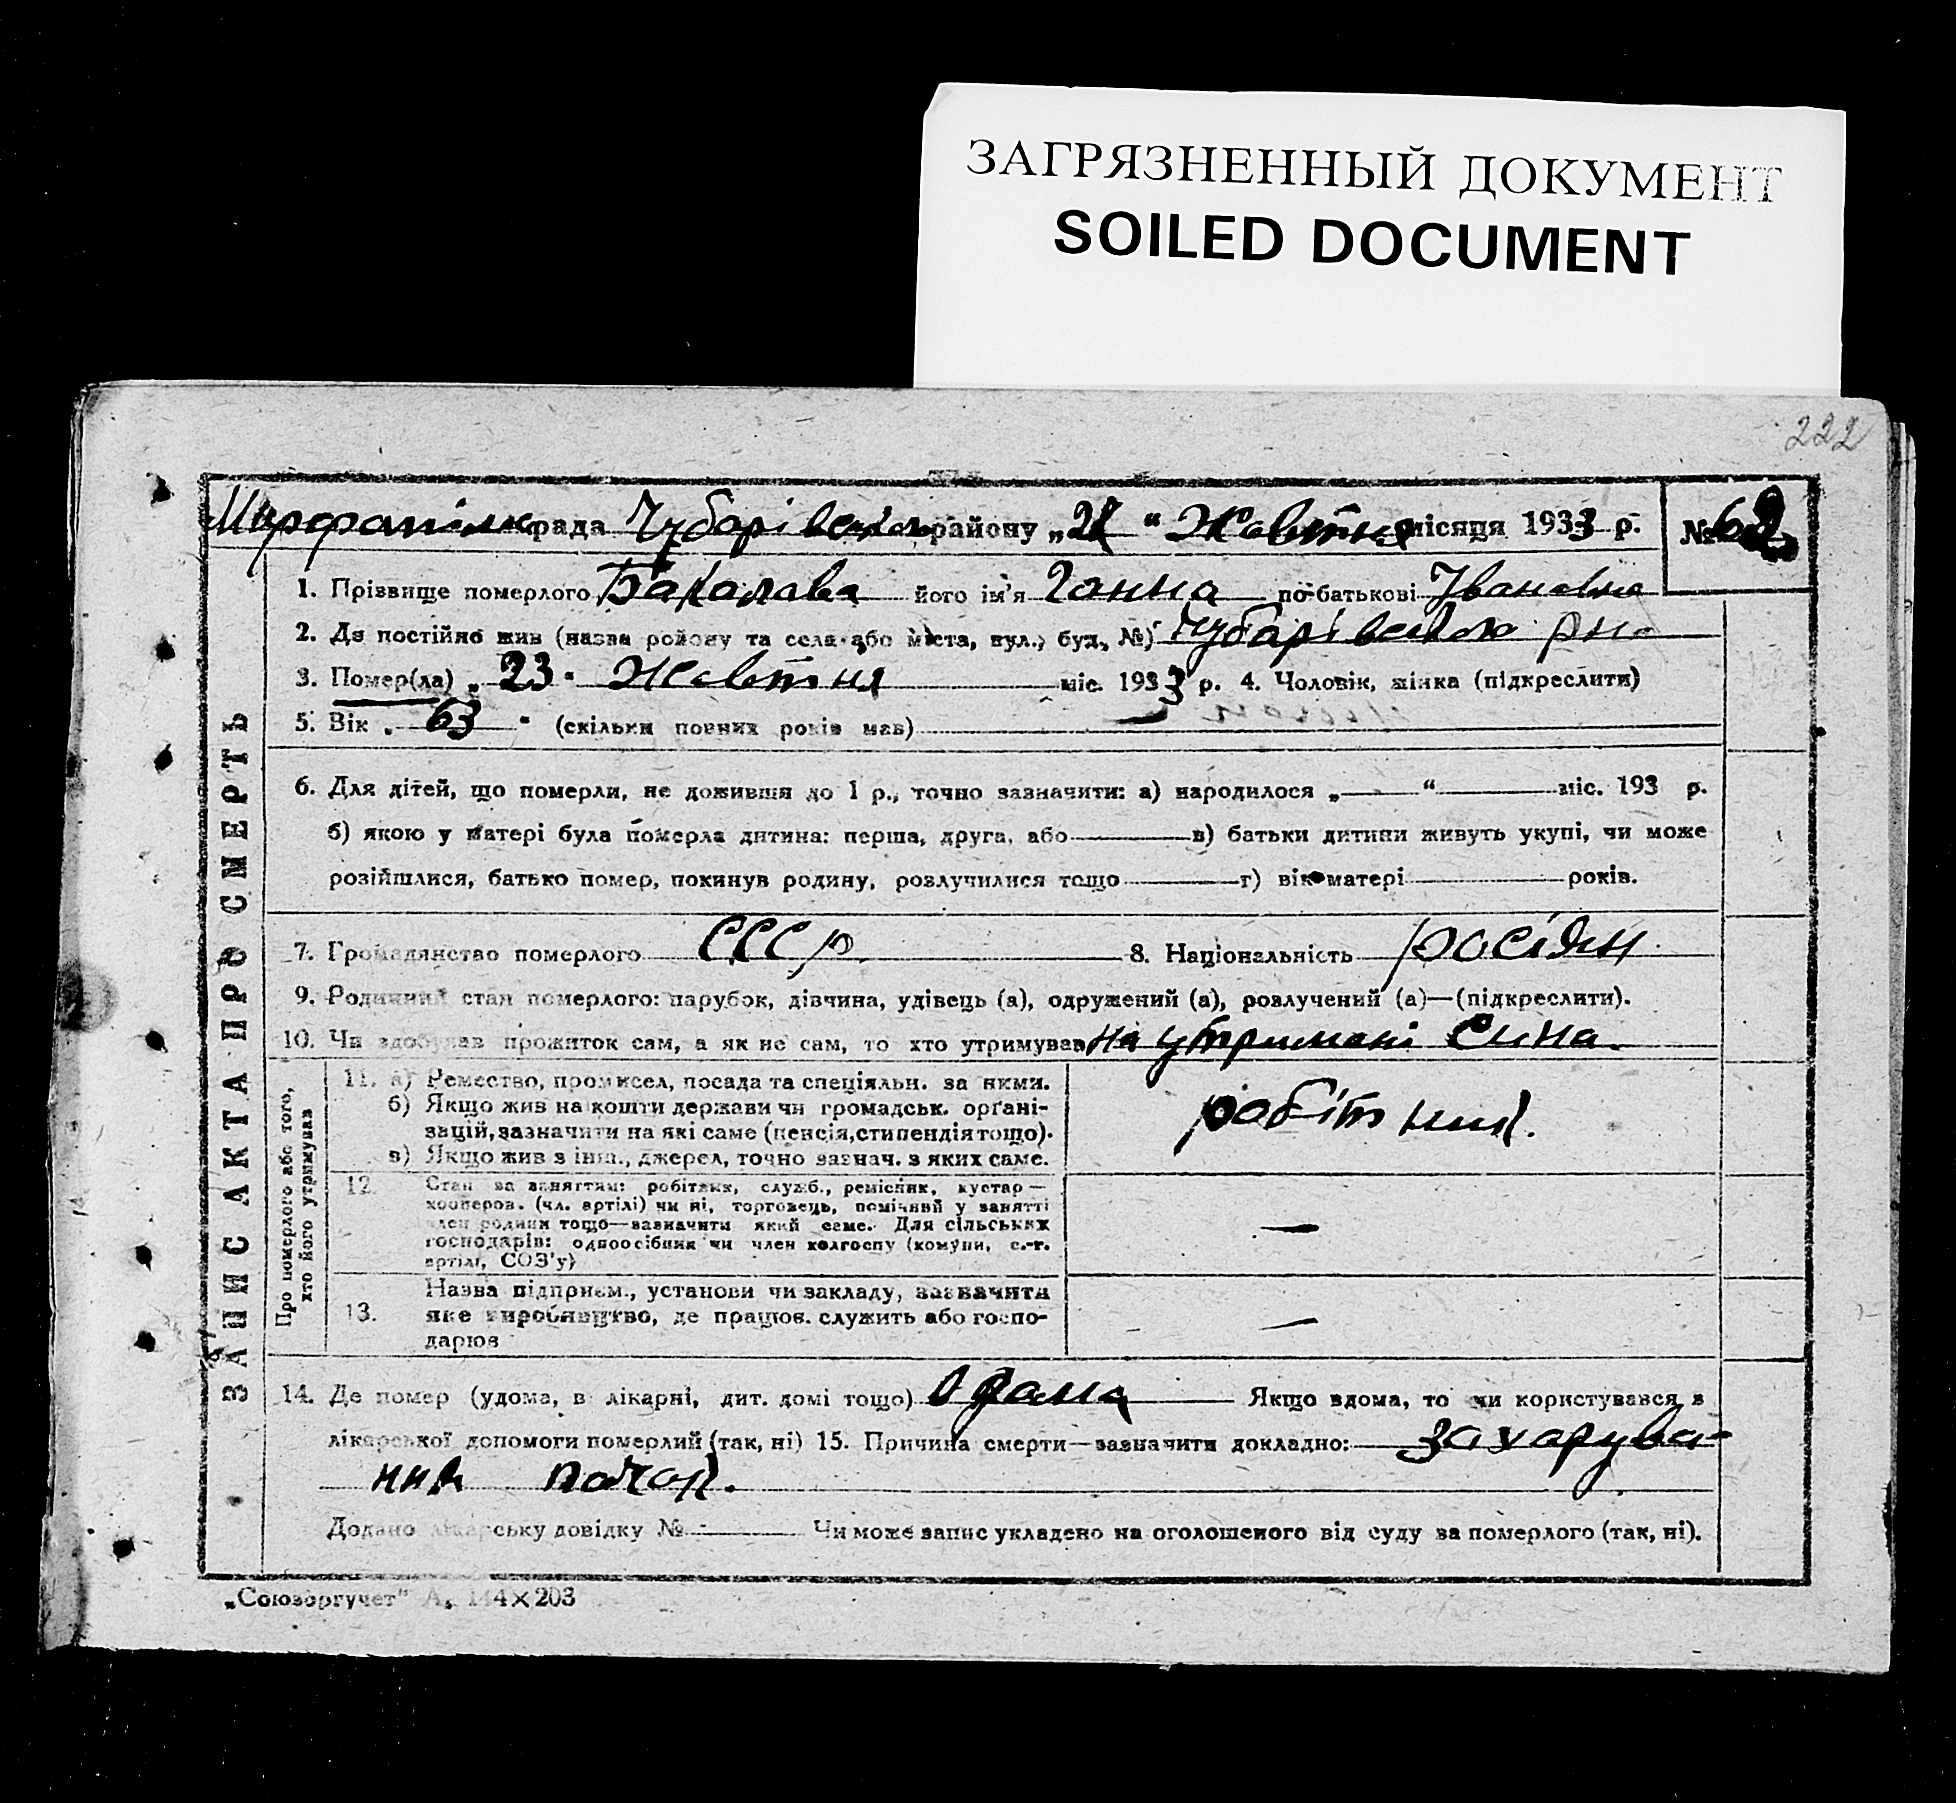 ЗАГРЯЗНЕННЫЙ ДОКУМЕНТ
SOILED DOCUMENT
222
рада Чубарівського району „ “ Жовтня місяця 1933 р. № 62
ЗАПИС АКТА ПРО СМЕРТЬ
1. Прізвище померлого його ім'я Ганна по-батькові Івановна
2. Де постійно жив (назва району та села або міста, вул., буд. №) Чубарівського рн.
3. Помер(ла) „ 23 " Жовтня міс. 1933 р. 4. Чоловік, жінка (підкреслити)
5. Вік „ 63 " (скільки повних років мав)
6. Для дітей, що померли, не доживши до 1 р., точно зазначити: а) народилося „ “ міс. 193 р.
б) якою у матері була померла дитина: перша, друга, або в) батьки дитини живуть укупі, чи може
розійшлися, батько помер, покинув родину, розлучилися тощо г) вік матері років.
7. Громадянство померлого СССР 8. Національність росіян
9. Родинний стан померлого: парубок, дівчина, удівець (а), одружений (а), розлучений (а)—(підкреслити).
10. Чи здобував прожиток сам, а як не сам, то хто утримував на утримані сина.
Про померлого або того,
хто його утримував
11. а) Ремество, промисел, посада та спеціяльн. за ними.
б) Якщо жив на кошти держави чи громадськ. органі-
зацій, зазначити на які саме (пенсія, стипендія тощо).
в) Якщо жив з інш., джерел, точно зазнач. з яких саме.
робітник.
12. Стан за заняттям: робітник, служб., ремісник, кустар—
кооперов. (чл. артілі) чи ні, торговець, помічний у занятті
член родини тощо—зазначити який саме. Для сільських
господарів: одноосібник чи член колгоспу (комуни, с.-г.
артілі, СОЗ'у)
—
13. Назва підприєм., установи чи закладу, зазначити
яке виробництво, де працюв. служить або госпо-
дарюв
—
14. Де помер (удома, в лікарні, дит. домі тощо) вдома Якщо вдома, то чи користувався з
лікарської допомоги померлий (так, ні) 15. Причина смерти—зазначити докладно: захарува-
ння
Додано лікарську довідку № Чи може запис укладено на оголошеного від суду за померлого (так, ні).
„Союзоргучет" А, 144×203